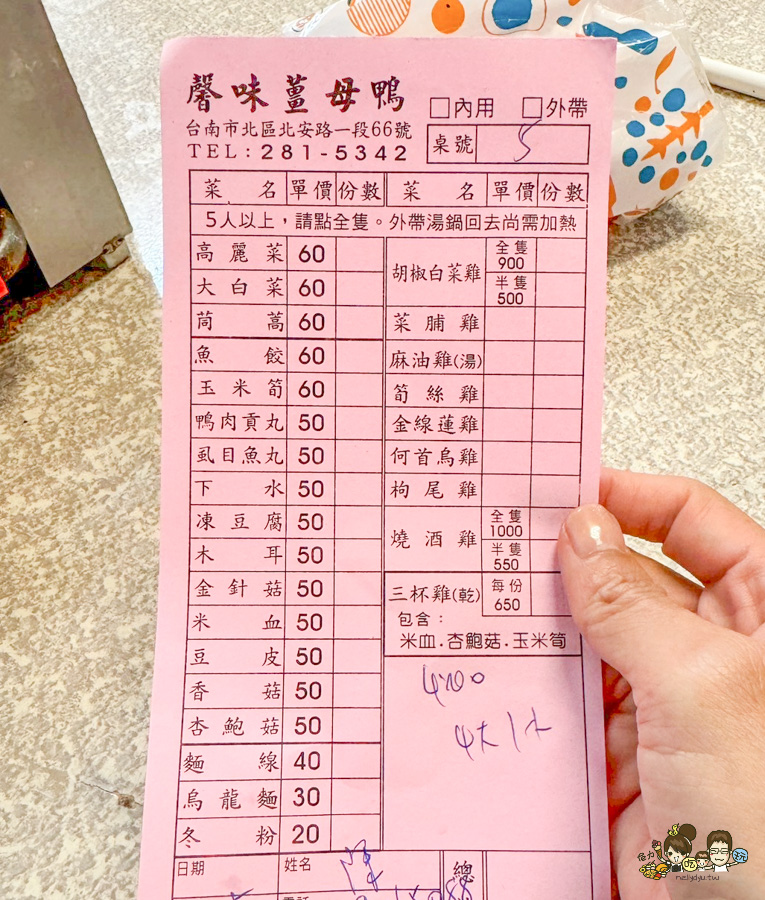 馨味薑母鴨
□內用 □外帶
台南市北區北安路一段66號
TEL：281-5342
桌號 5
菜名 單價 份數 菜名 單價 份數
5人以上，請點全隻。外帶湯鍋回去尚需加熱
高麗菜 60
大白菜 60
茼蒿 60
魚餃 60
玉米筍 60
鴨肉貢丸 50
虱目魚丸 50
下水 50
凍豆腐 50
木耳 50
金針菇 50
米血 50
豆皮 50
香菇 50
杏鮑菇 50
麵線 40
烏龍麵 30
冬粉 20
胡椒白菜雞 全隻 900
半隻 500
菜脯雞
麻油雞(湯)
筍絲雞
金線蓮雞
何首烏雞
枸尾雞
燒酒雞 全隻 1000
半隻 550
三杯雞(乾) 每份 650
包含：
米血.杏鮑菇.玉米筍
4大1小
日期 姓名 總
nellydyu.tw